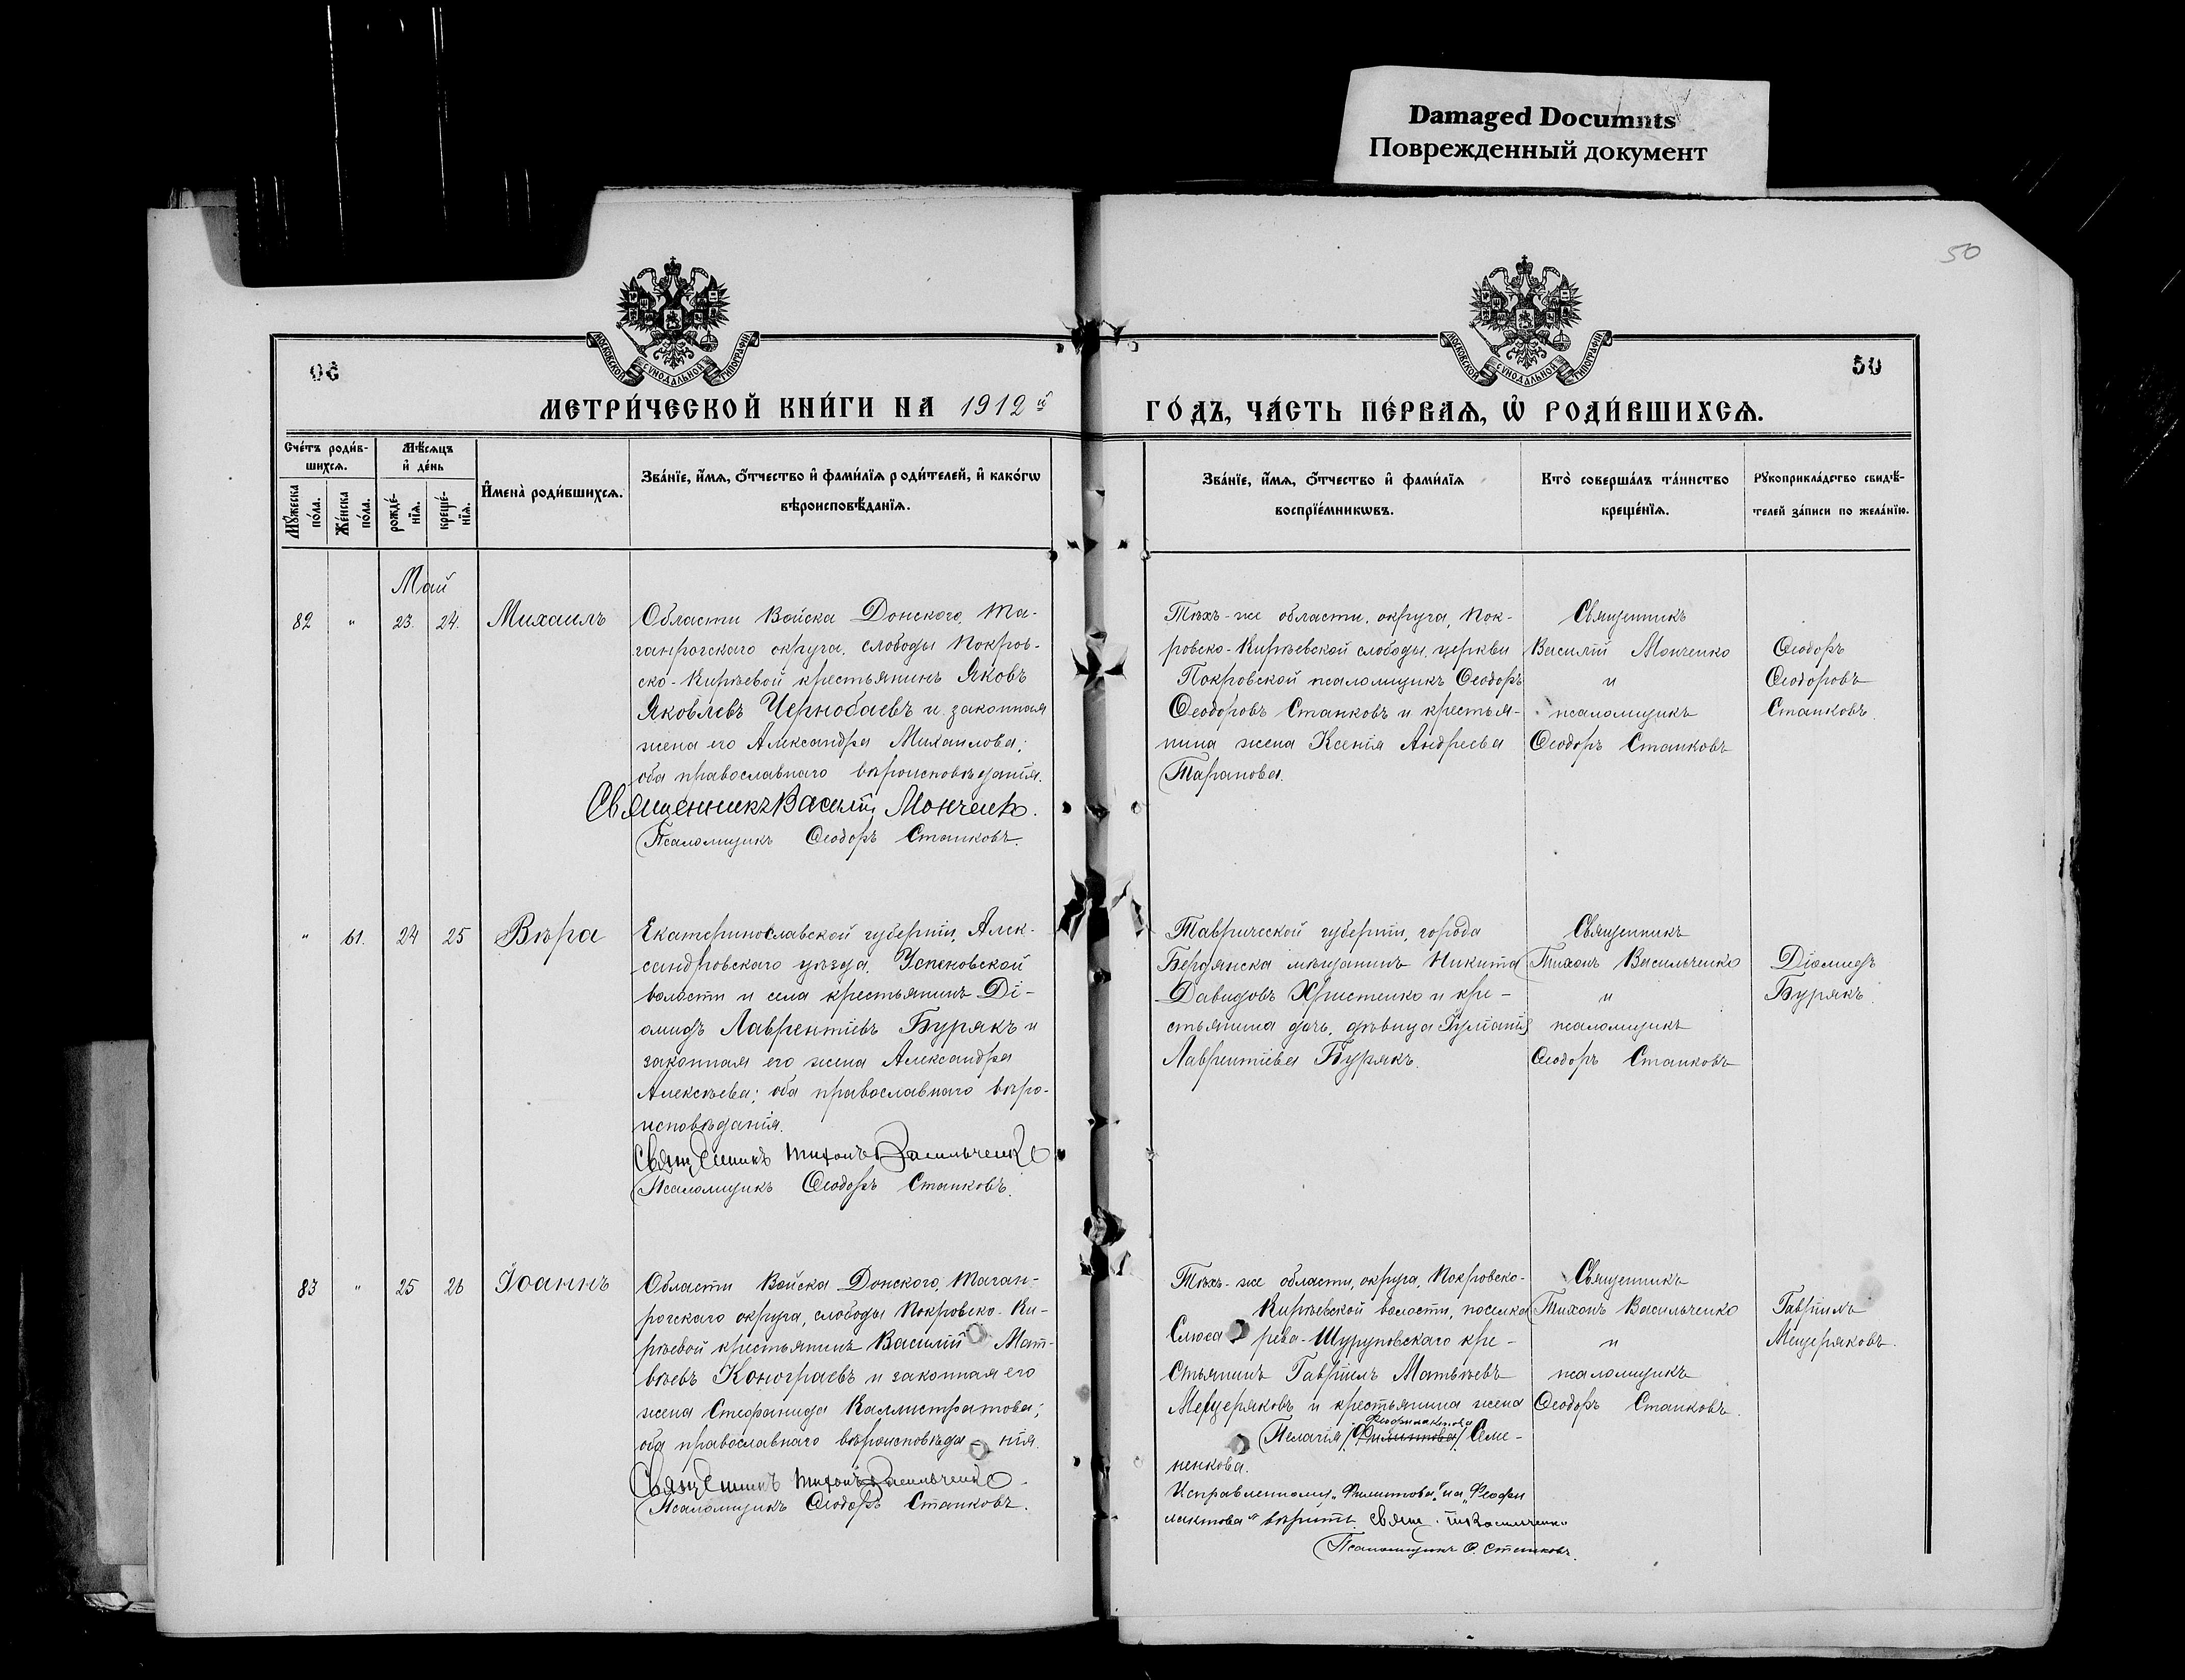 Damaged Documnts
Поврежденный документ
50
МОСКОВСКОЙ СѴНОДАЛЬНОЙ ТИПОГРАФІИ
МОСКОВСКОЙ СѴНОДАЛЬНОЙ ТИПОГРАФІИ
50
МЕТРИ́ЧЕСКОЙ КНИ́ГИ НА 1912й
ГО́ДЪ, ЧА́СТЬ ПЕ́РВАѦ, Ѡ҆ РОДИ́ВШИХСѦ.
Сче́тъ роди́в-
шихсѧ.
Мѣ́сѧцъ
и҆ де́нь
Мꙋ́жеска
по́ла.
Же́нска
по́ла.
рожде́-
нїѧ.
креще́-
нїѧ.
И҆мена̀ роди́вшихсѧ.
Зва́нїе, и҆́мѧ, ѻ҆́тчество и҆ фами́лїѧ роди́телей, и҆ како́гѡ
вѣроисповѣ́данїѧ.
Зва́нїе, и҆́мѧ, ѻ҆́тчество и҆ фами́лїѧ
воспрїе́мникѡвъ.
Кто̀ соверша́лъ та́инство
креще́нїѧ.
Рꙋкоприкла́дство свидѣ́-
телей за́писи по жела́нїю.
Май
82 " 23. 24. Михаилъ
Области Войска Донского, Та-
ганрогскаго округа, слободы Покров-
ско-Кирѣевой крестьянинъ Яковъ
Яковлевъ Чернобаевъ и законная
жена его Александра Михаилова;
оба православнаго вѣроисповѣданія.
Священникъ Василій Монченко.
Псаломщикъ Ѳеодоръ Станковъ.
Тѣхъ-же области, округа, Пок-
ровско-Кирѣевской слободы, церкви
Покровской псаломщикъ Ѳеодоръ
Ѳеодоровъ Станковъ и крестья-
нина жена Ксенія Андреева
Таранова.
Священникъ
Василій Монченко
и
псаломщикъ
Ѳеодоръ Станковъ
Ѳеодоръ
Ѳеодоровъ
Станковъ.
" 61. 24 25 Вѣра
Екатеринославской губерніи, Алек-
сандровскаго уѣзда, Успеновской
волости и села крестьянинъ Ді-
омидъ Лаврентіевъ Бурякъ и
законная его жена Александра
Алексѣева; оба православнаго вѣро-
исповѣданія.
Священникъ Тихонъ Васильченко
Псаломщикъ Ѳеодоръ Станковъ.
Таврической губерніи, города
Бердянска мѣщанинъ Никита
Давидовъ Христенко и кре-
стьянина дочь, дѣвица Іуліанія
Лаврентіева Бурякъ.
Священникъ
Тихонъ Васильченко
и
псаломщикъ
Ѳеодоръ Станковъ
Діомидъ
Бурякъ.
83 " 25 26 Іоаннъ
Области Войска Донского, Таган-
рогскаго округа, слободы Покровско-Ки-
рѣевой крестьянинъ Василій Мат-
вѣевъ Конограевъ и законная его
жена Стефанида Каллистратова;
оба православнаго вѣроисповѣда-нія.
Священникъ Тихонъ Васильченко
Псаломщикъ Ѳеодоръ Станковъ.
Тѣхъ-же области, округа, Покровско-
Кирѣевской волости, поселка
Слюса рева-Шуруповскаго кре-
стьянинъ Гавріилъ Матвѣевъ
Мещеряковъ и крестьянина жена
Феофилактова
Пелагія /Филиппова/ Семе-
ненкова.
Исправленному „Филиппова" на „Феофи
лактова" вѣрить. Свящ. Т. Васильченко
Псаломщикъ Ѳ. Станковъ.
Священникъ
Тихонъ Васильченко
и
псаломщикъ
Ѳеодоръ Станковъ.
Гавріилъ
Мещеряковъ.